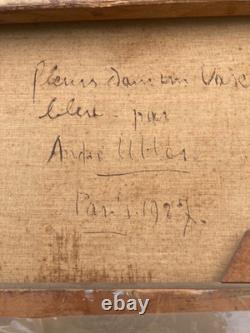 fleurs dans un Vase
bleu - par
André Utter
Paris. 1927.
ebay